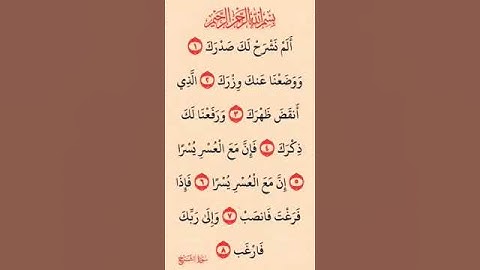 بِسْمِ اللَّهِ الرَّحْمَٰنِ الرَّحِيمِ
أَلَمْ نَشْرَحْ لَكَ صَدْرَكَ ١
وَوَضَعْنَا عَنكَ وِزْرَكَ ٢ الَّذِي
أَنقَضَ ظَهْرَكَ ٣ وَرَفَعْنَا لَكَ
ذِكْرَكَ ٤ فَإِنَّ مَعَ الْعُسْرِ يُسْرًا
٥ إِنَّ مَعَ الْعُسْرِ يُسْرًا ٦ فَإِذَا
فَرَغْتَ فَانصَبْ ٧ وَإِلَىٰ رَبِّكَ
فَارْغَب ٨
سورة الشرح